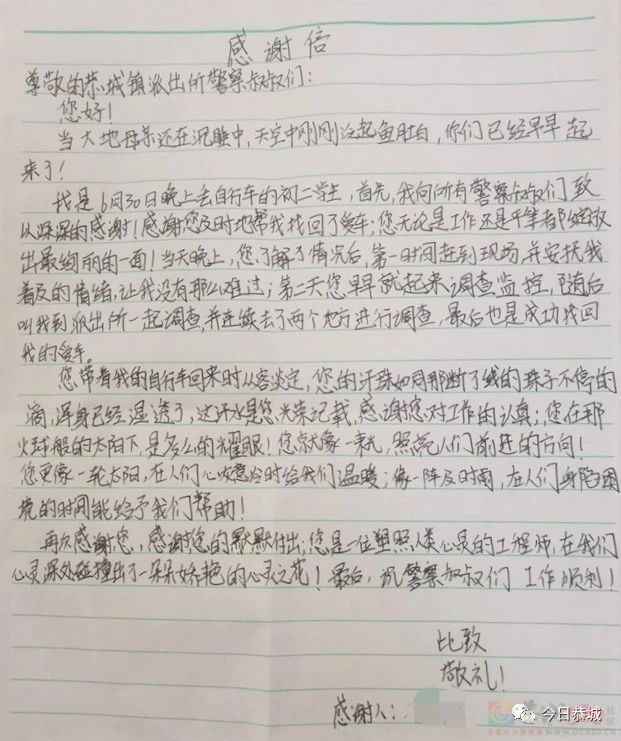 感谢信
尊敬的恭城镇派出所警察叔叔们：
您好！
当大地母亲还在沉睡中，天空中刚刚泛起鱼肚白，你们已经早早起
来了！
我是6月30日晚上丢自行车的初二学生，首先，我向所有警察叔叔们致
以深深的感谢！感谢您及时地帮我找回了爱车；您无论是工作还是平常都绽放
出最绚丽的一面！当天晚上，您了解了情况后，第一时间赶到现场，并安抚我
着及的情绪，让我没有那么难过；第二天您早早就起来调查监控，随后
叫我到派出所一起调查，并连续去了两个地方进行调查，最后也是成功找回
我的爱车。
您带着我的自行车回来时从容淡定，您的汗珠如同那断了线的珠子不停的
滴，浑身已经湿透了，这汗水是您光荣记载，感谢您对工作的认真；您在那
火球般的太阳下，是多么的耀眼！您就像一束光，照亮人们前进的方向！
您更像一轮太阳，在人们心灰意冷时给我们温暖；像一阵及时雨，在人们身陷困
境的时间能给予我们帮助！
再次感谢您，感谢您的默默付出；您是一位塑照人类心灵的工程师，在我们
心灵深处碰撞出了一朵朵娇艳的心灵之花！最后，祝警察叔叔们工作顺利！
比致
敬礼！
感谢人：
今日恭城